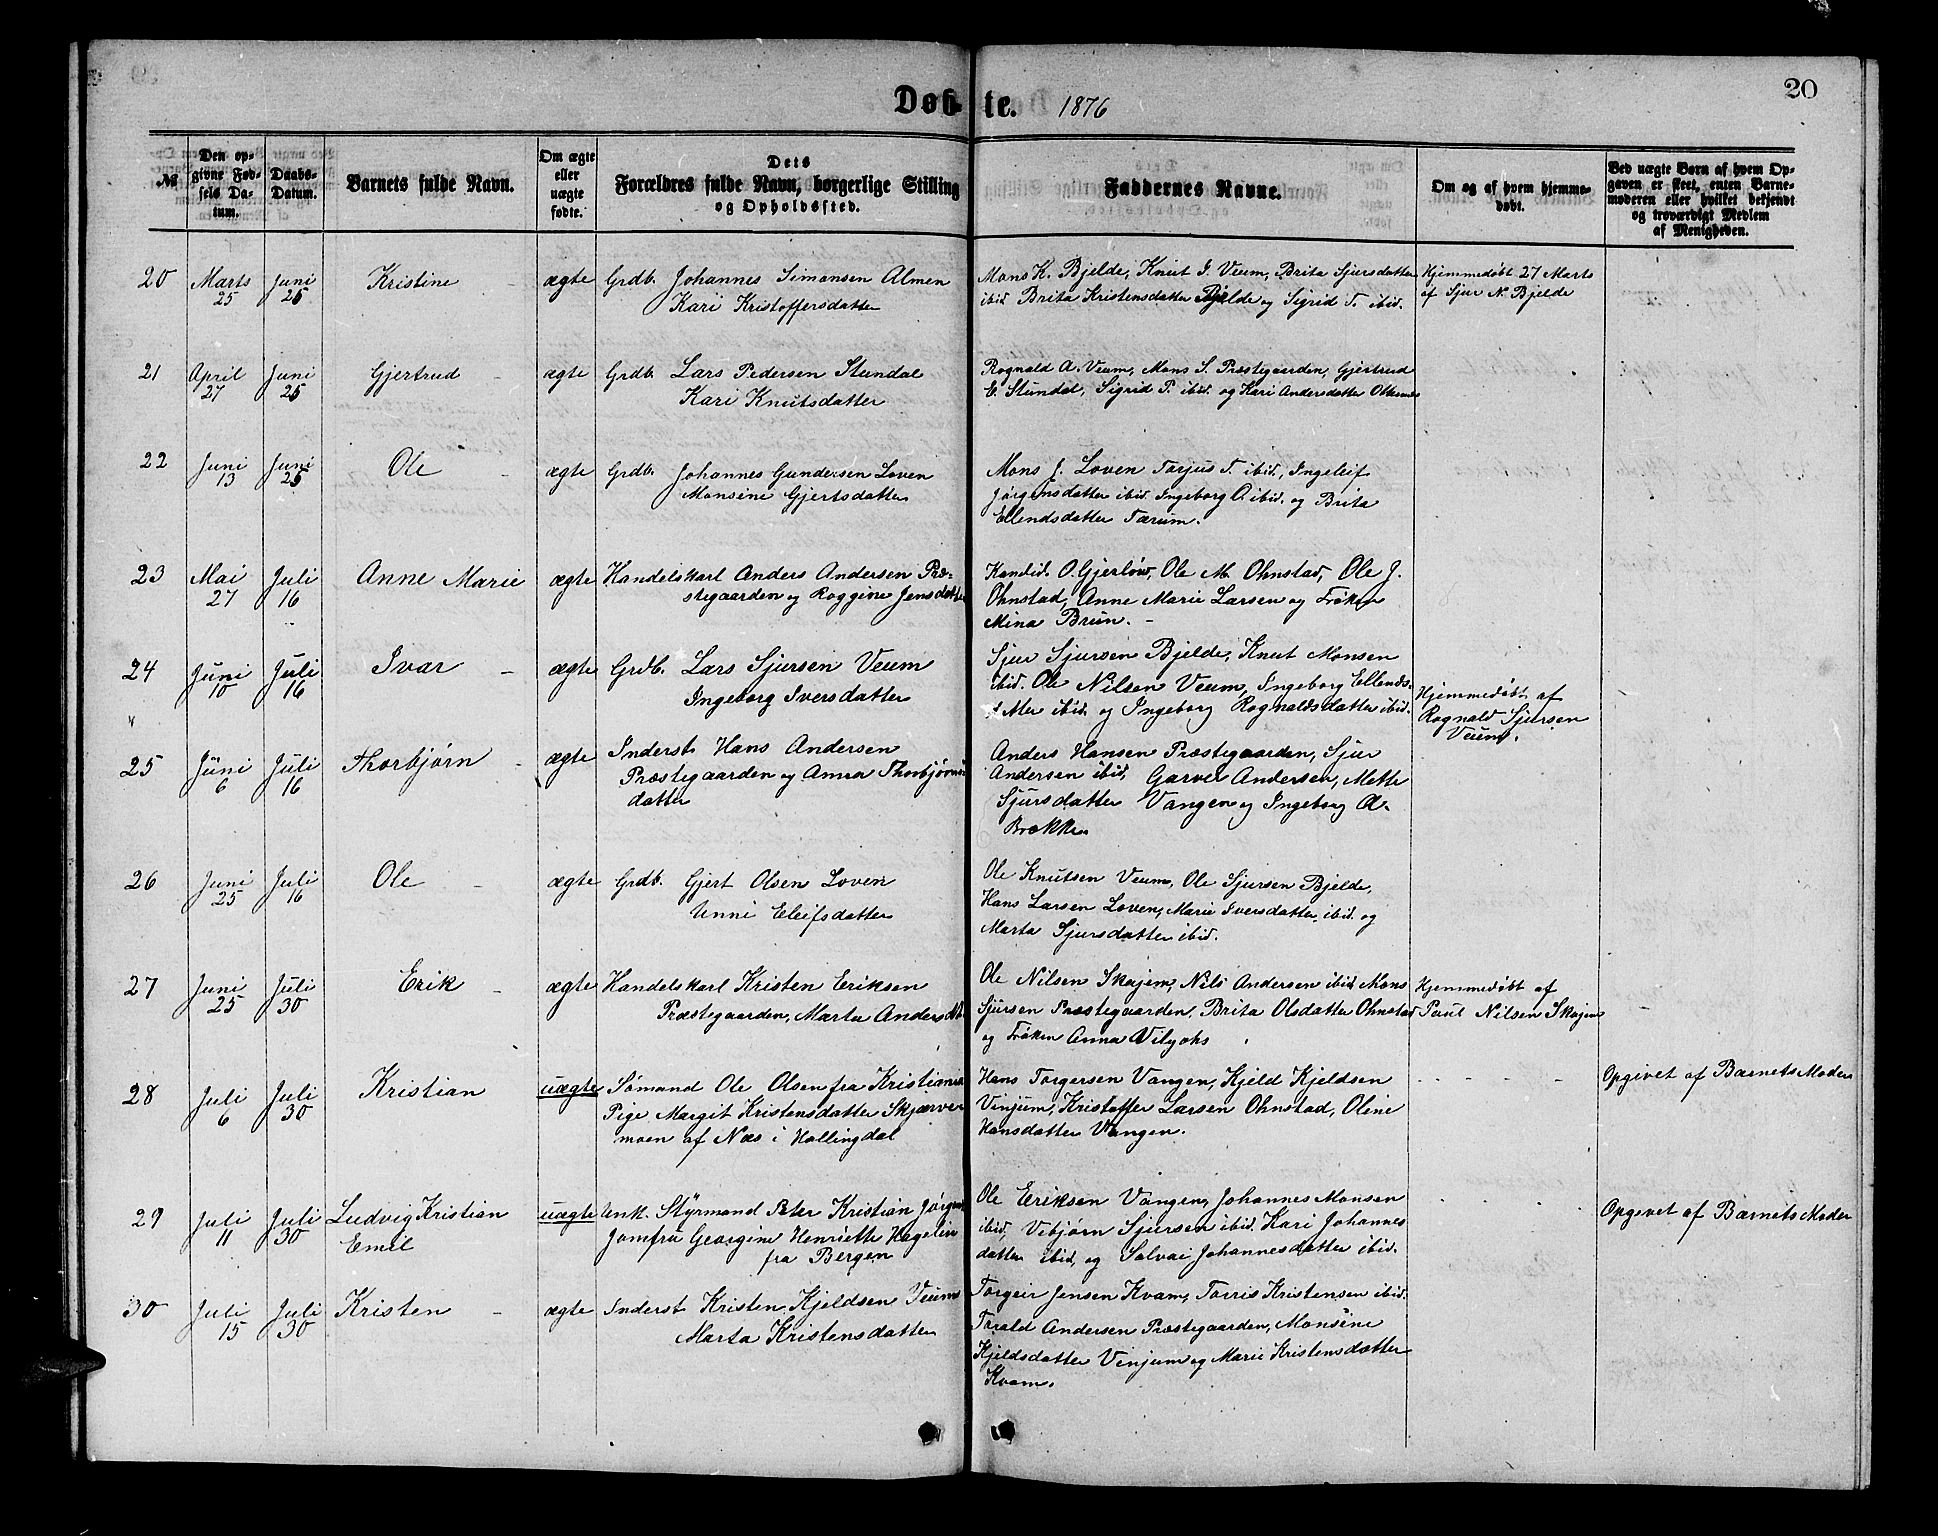 20
Døbte. 1876
№
Den opgivne Fødsels Datum.
Daabs-Datum.
Barnets fulde Navn.
Om ægte eller uægte fødte.
Dets Forældres fulde Navn, borgerlige Stilling og Opholdssted.
Faddernes Navne.
Om og af hvem hjemmedøbt.
Ved uægte Børn af hvem Opgaven er skeet, enten Barnemoderen eller hvilket bekjendt og troværdigt Medlem af Menigheden.
20 Marts 25 Juni 25 Kristine ægte Grdb. Johannes Simonsen Almen
Kari Kristoffersdatter
Mons K. Bjelde, Knut J. Veum, Brita Sjursdatter
ibid Brita Kristensdatter Bjelde og Sigrid T. ibid.
Hjemmedøbt 27 Marts
af Sjur N. Bjelde
21 April 27 Juni 25 Gjertrud ægte Grdb. Lars Pedersen Stundal
Kari Knutsdatter
Rognald A. Veum, Mons S. Præstegaarden, Gjertrud
E. Stundal, Sigrid P. ibid. og Kari Andersdatter
22 Juni 13 Juni 25 Ole ægte Grdb. Johannes Gundersen Loven
Monsine Gjertsdatter
Mons J. Loven Torjus T. ibid., Ingeleif
Jørgensdatter ibid. Ingeborg O. ibid. og Brita
Ellendsdatter Tærum.
23 Mai 27 Juli 16 Anne Marie ægte Handelskarl Anders Andersen Præ-
stegaarden og Roggine Jensdatter
Kandid. O. Gjerløw, Ole M. Ohnstad, Ole J.
Ohnstad, Anne Marie Larsen og Frøken
Mina Brun. -
24 Juni 10 Juli 16 Ivar ægte Grdb. Lars Sjursen Veum
Ingeborg Iversdatter
Sjur Sjursen Bjelde, Knut Monsen
ibid. Ole Nilsen Veum, Ingeborg Ellends-
datter ibid. og Ingeborg Rognaldsdatter ibid.
Hjemmedøbt af
Rognald Sjursen
Veum.
25 Juni 6 Juli 16 Thorbjørn ægte Inderst Hans Andersen
Præstegaarden og Anna Thorbjørns
datter
Anders Hansen Præstegaarden, Sjur
Andersen ibid, Garver Andersen, Mette
Sjursdatter Vangen og Ingeborg A.
Brække
26 Juni 25 Juli 16 Ole ægte Grdb. Gjert Olsen Loven
Unni Eleifsdatter
Ole Knutsen Veum, Ole Sjursen Bjelde,
Hans Larsen Loven, Marie Iversdatter ibid. og
Marta Sjursdatter ibid.
27 Juni 25 Juli 30 Erik ægte Handelskarl Kristen Eriksen
Præstegaarden, Marta Andersdtr
Ole Nilsen Skajem, Nils Andersen ibid, Mons
Sjursen Præstegaarden, Brita Olsdatter Ohnstad
og Frøken Anna
Hjemmedøbt af
Paul Nilsen Skajem
28 Juli 6 Juli 30 Kristian uægte Sømand Ole Olsen fra Kristiania
Pige Margit Kristensdatter Skjærver
moen af Næs i Hallingdal
Hans Torgersen Vangen, Kjeld Kjeldsen
Vinjum, Kristoffer Larsen Ohnstad, Oline
Hansdatter Vangen.
Opgivet af Barnets Moder
29 Juli 11 Juli 30 Ludvig Kristian
Emil
uægte Ank. Styrmand Peter Kristian Jørgens
Jomfru Georgine Henriette Hagelin
fra Bergen
Ole Eriksen Vangen, Johannes Monsen
ibid, Vibjørn Sjursen ibid. Kari Johannes
datter ibid, og Salvai Johannesdatter ibid.
Opgivet af Barnets Moder
30 Juli 15 Juli 30 Kristen ægte Inderst Kristen Kjeldsen Veum
Marta Kristensdatter
Torgeir Jensen Kvam, Torris Kristensen ibid.
Torald Andersen Præstegaarden, Monsine
Kjeldsdatter Vinjum og Marie Kristensdatter
Kvam.